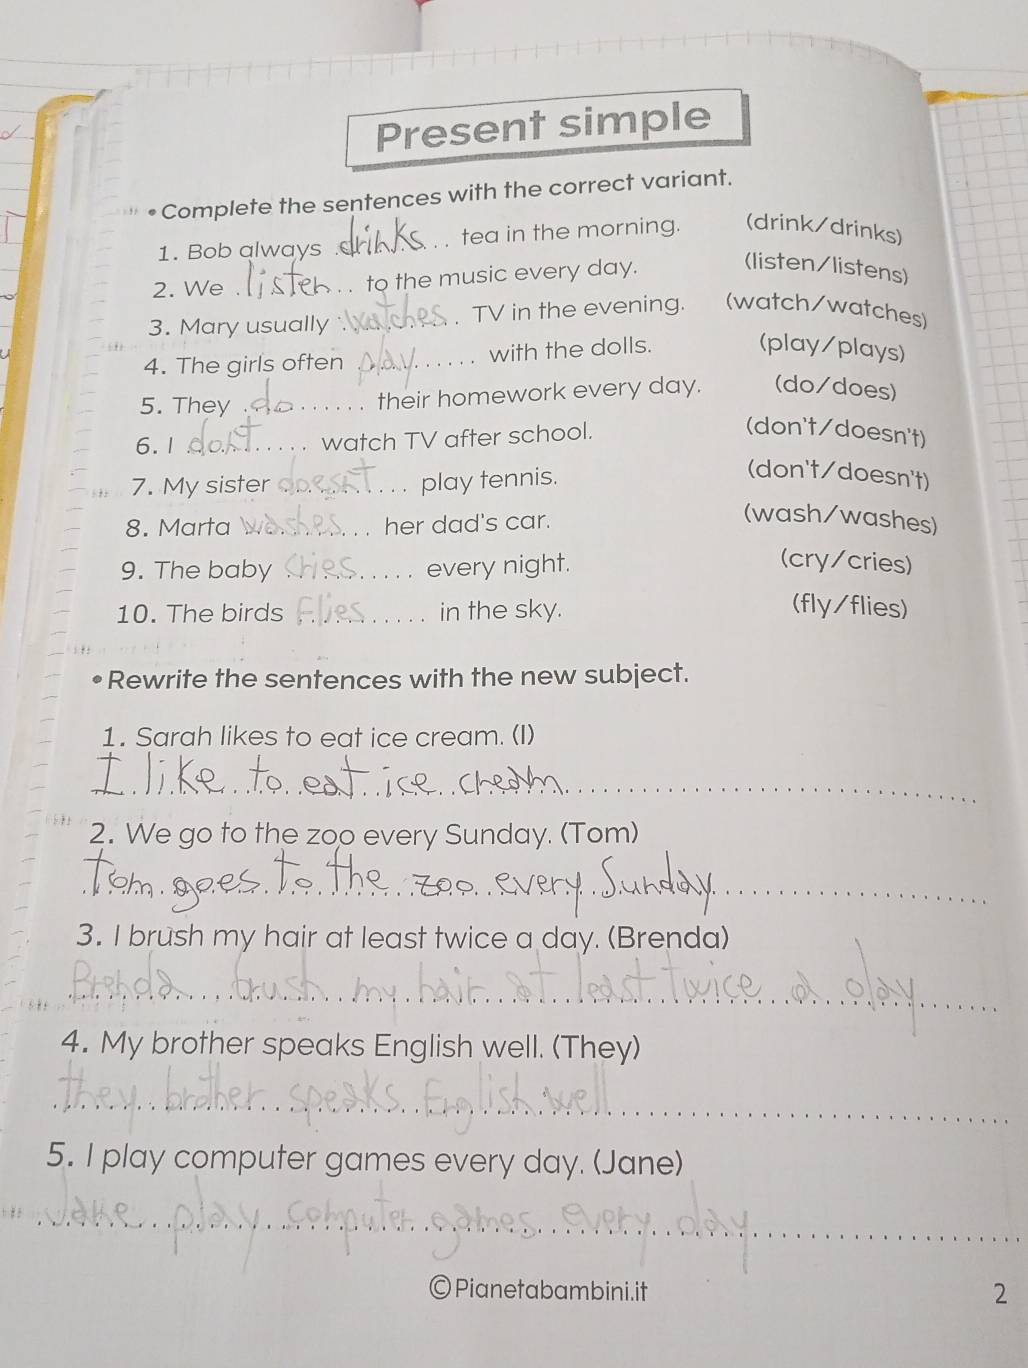 Present simple
• Complete the sentences with the correct variant.
1. Bob always drinks... tea in the morning. (drink/drinks)
2. We .listen.. to the music every day. (listen/listens)
3. Mary usually .watches.. TV in the evening. (watch/watches)
4. The girls often .play...... with the dolls. (play/plays)
5. They .do...... their homework every day. (do/does)
6. I .don't..... watch TV after school. (don't/doesn't)
7. My sister doesn't.... play tennis. (don't/doesn't)
8. Marta washes... her dad's car. (wash/washes)
9. The baby cries..... every night. (cry/cries)
10. The birds Flies..... in the sky. (fly/flies)
• Rewrite the sentences with the new subject.
1. Sarah likes to eat ice cream. (I)
I like to eat ice cream
2. We go to the zoo every Sunday. (Tom)
Tom goes to the zoo every Sunday.
3. I brush my hair at least twice a day. (Brenda)
Brenda brush my hair at least twice a day
4. My brother speaks English well. (They)
they brother speaks English well
5. I play computer games every day. (Jane)
Jane play computer games every day
©Pianetabambini.it
2